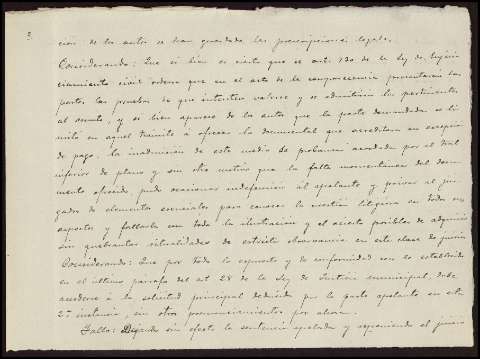 2
ción de los autos se han guardado las prescripciones legales.
Considerando: Que si bien es cierto que el art. 730 de la Ley de Enjui-
ciamiento civil ordena que en el acto de la comparecencia presentarán las
partes las pruebas de que intenten valerse y se admitirán las pertinentes
al asunto, y si bien aparece de los autos que la parte demandada se li-
mitó en aquel trámite á ofrecer la documental que acreditara su excepción
de pago, la inadmisión de este medio de probanza acordada por el Tral
inferior de plano y sin otro motivo que la falta momentánea del docu-
mento ofrecido, pudo ocasionar indefensión al apelante y privar al juz-
gador de elementos esenciales para conocer la cuestión litigiosa en todos sus
aspectos y fallarla con toda la ilustración y el acierto posibles de adquirir
sin quebrantar solemnidades de estricta observancia en esta clase de juicios
Considerando: Que por todo lo expuesto y de conformidad con lo establecido
en el último párrafo del art 28 de la Ley de Justicia municipal, debe
accederse á la solicitud principal deducida por la parte apelante en esta
2ª instancia, sin otros pronunciamientos por ahora.
Fallo: Dejando sin efecto la sentencia apelada y reponiendo el juicio